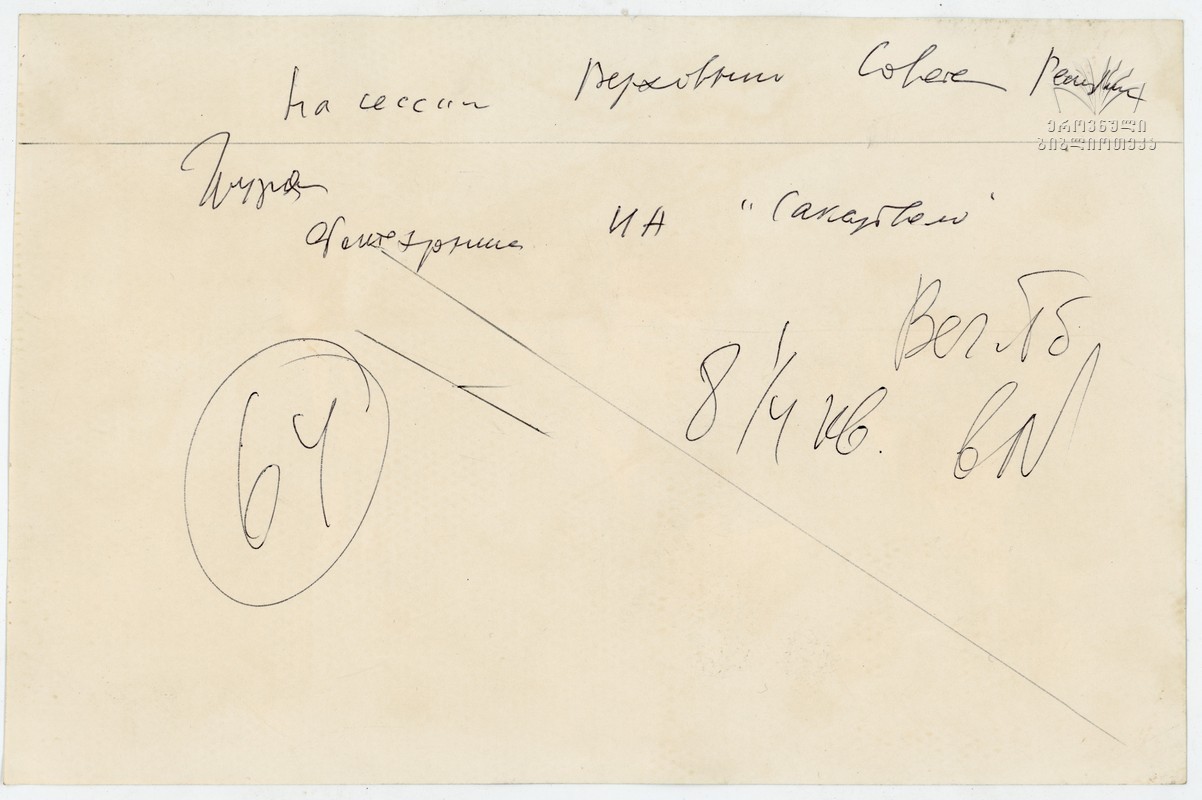 На сессии Верховного Совета Республики
ეროვნული
ბიბლიოთეკა
ИА "Сакартвело"
Веч. Тб
8 1/4 кв. в N
64